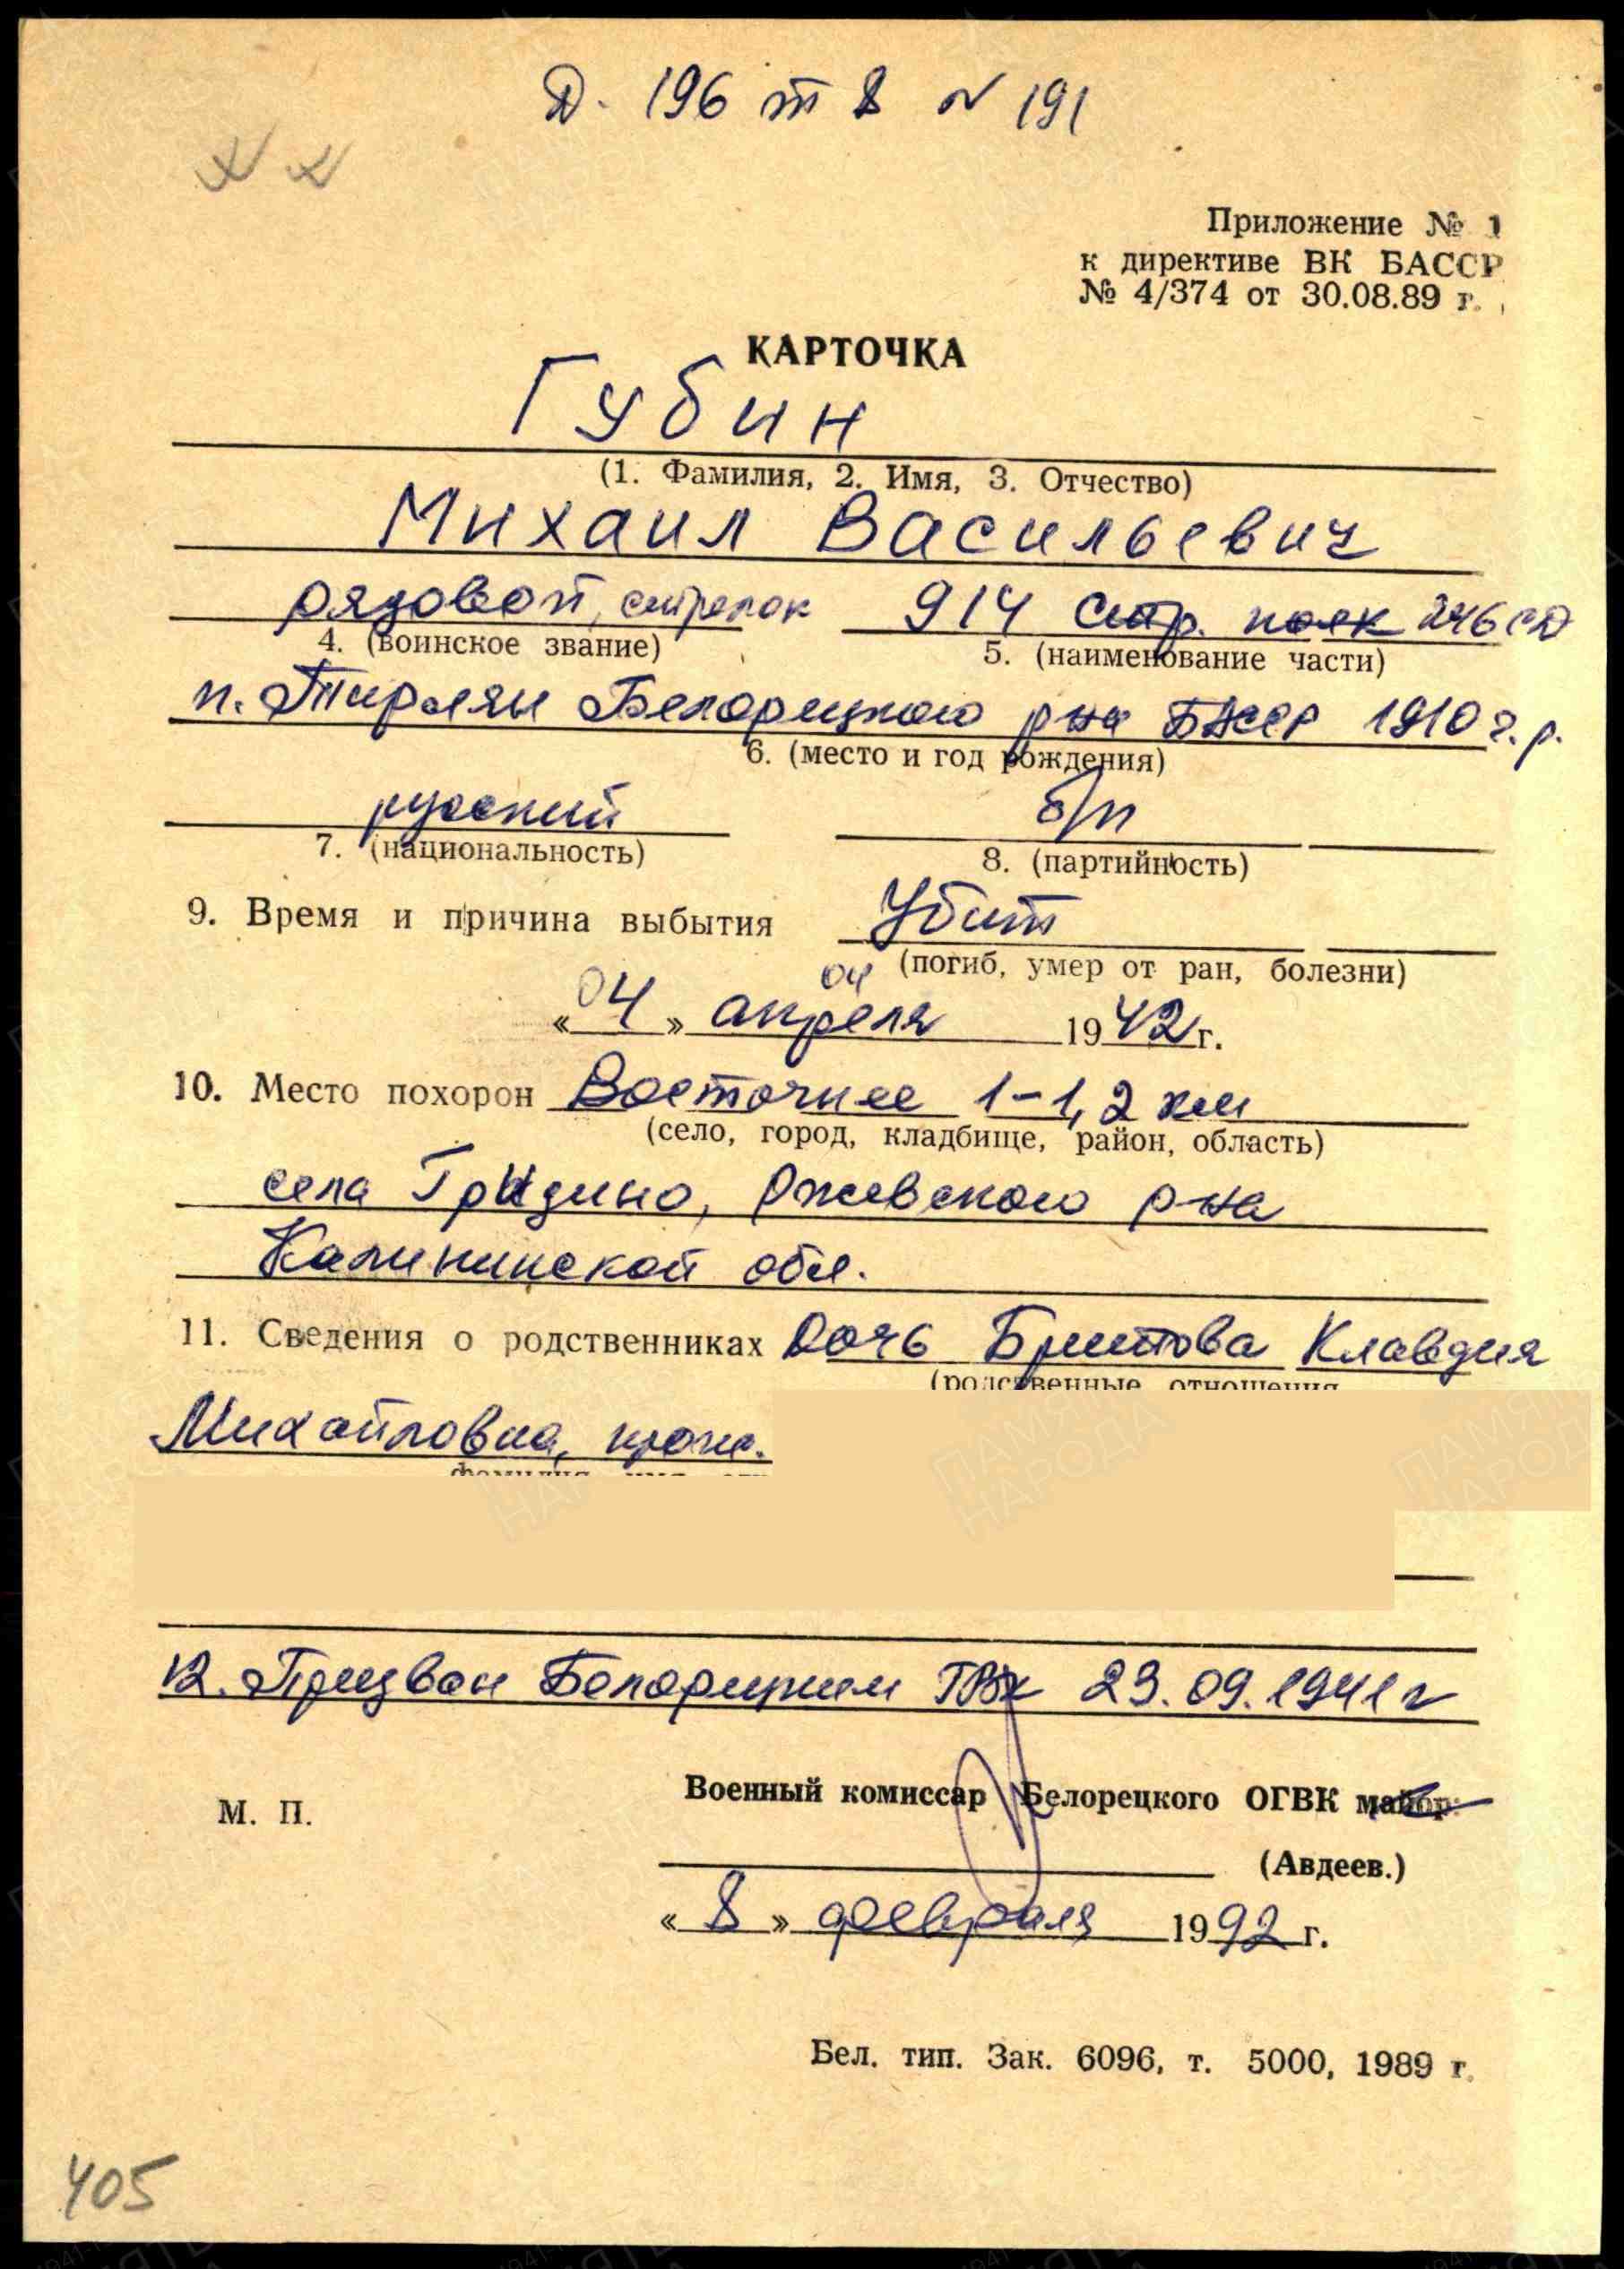 Д. 196 т 8 N 191
Приложение № 1
к директиве ВК БАССР
№ 4/374 от 30.08.89 г.
КАРТОЧКА
Губин
(1. Фамилия, 2. Имя, 3. Отчество)
Михаил Васильевич
рядовой, стрелок 914 стр. полк 246 СД
4. (воинское звание) 5. (наименование части)
п. Тирлян Белорецкого р-на БАССР 1910 г.р.
6. (место и год рождения)
русский б/п
7. (национальность) 8. (партийность)
9. Время и причина выбытия Убит
(погиб, умер от ран, болезни)
04
«04» апреля 1942 г.
10. Место похорон Восточнее 1-1,2 км
(село, город, кладбище, район, область)
села Гридино, Ржевского р-на
Калининской обл.
11. Сведения о родственниках Дочь Бритова Клавдия
(родственные отношения
Михайловна, прож.
фамилия, имя
12. Призван Белорецким ГВК 23.09.1941 г
Военный комиссар Белорецкого ОГВК майор
М. П.
(Авдеев.)
«8» февраля 1992 г.
Бел. тип. Зак. 6096, т. 5000, 1989 г.
405